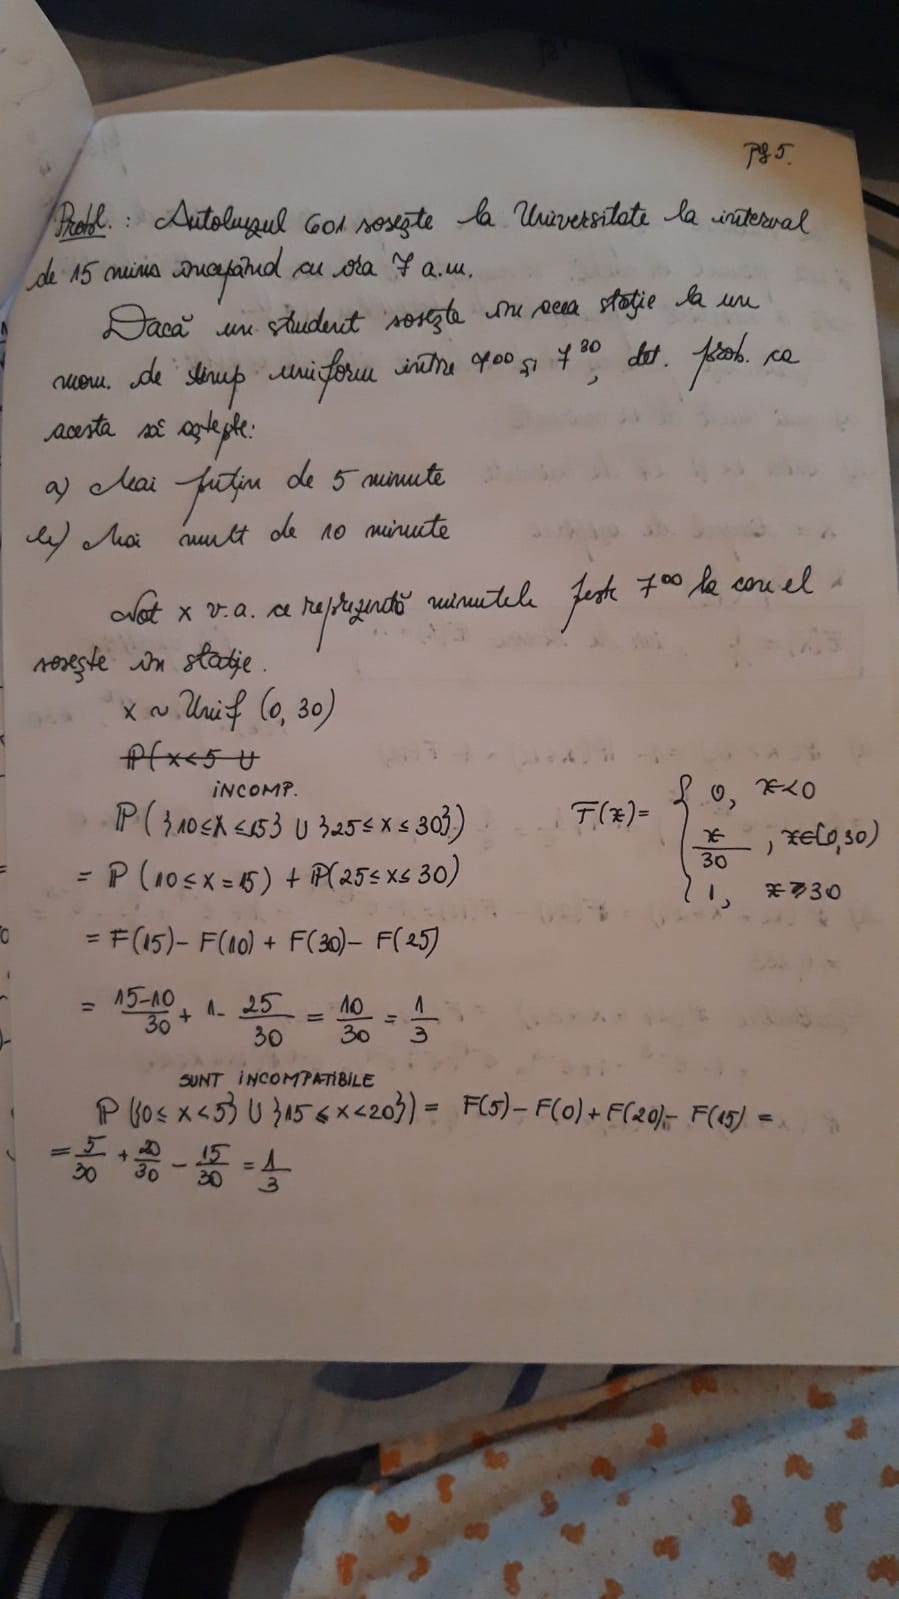 Pg 5.
Probl.: Autobuzul 601 sosește la Universitate la interval
de 15 mins începând cu ora 7 a.m.
Dacă un student sosește în acea stație la un
mom. de timp uniform între 7⁰⁰ și 7³⁰, det. prob. ca
acesta să aștepte:
a) Mai puțin de 5 minute
b) Mai mult de 10 minute
Not x v.a. ce reprezintă minutele peste 7⁰⁰ la care el
sosește în stație.
x ~ Unif (0, 30)
P(x<5 ∪
INCOMP.
P({10≤x≤15} ∪ {25≤x≤30})
= P(10≤x=15) + P(25≤x≤30)
= F(15) - F(10) + F(30) - F(25)
= 15-10/30 + 1 - 25/30 = 10/30 = 1/3
F(x) = { 0, x<0
x/30, x∈[0,30)
1, x≥30
SUNT INCOMPATIBILE
P({0≤x<5} ∪ {15≤x<20}) = F(5) - F(0) + F(20) - F(15) =
= 5/30 + 20/30 - 15/30 = 1/3